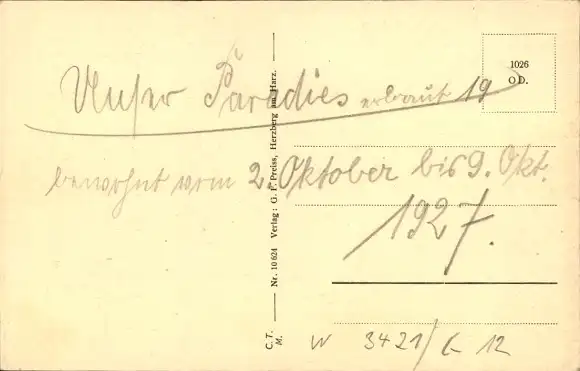 Unser Paradies erbaut 19
bewohnt vom 2. Oktober bis 9. Okt.
1927.
1026
O D.
Nr. 10 624 Verlag: G. F. Preiss, Herzberg am Harz.
C. T.
M.
W 3421/G 12